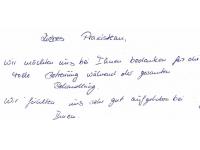 Liebes Praxisteam,
wir möchten uns bei Ihnen bedanken für die
tolle Betreuung während der gesamten
Behandlung.
Wir fühlten uns sehr gut aufgehoben bei
Ihnen.